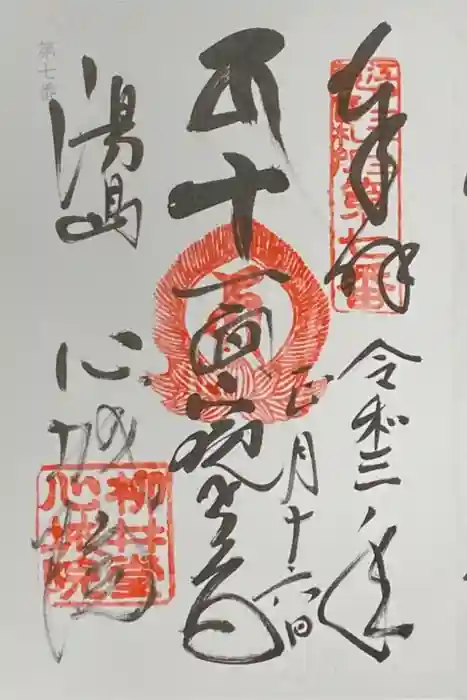 奉拝
江戸三十三観音札所第七番
令和三年
月十六日
十一面観世音
第七番
湯島
心城院
柳井堂
心城院